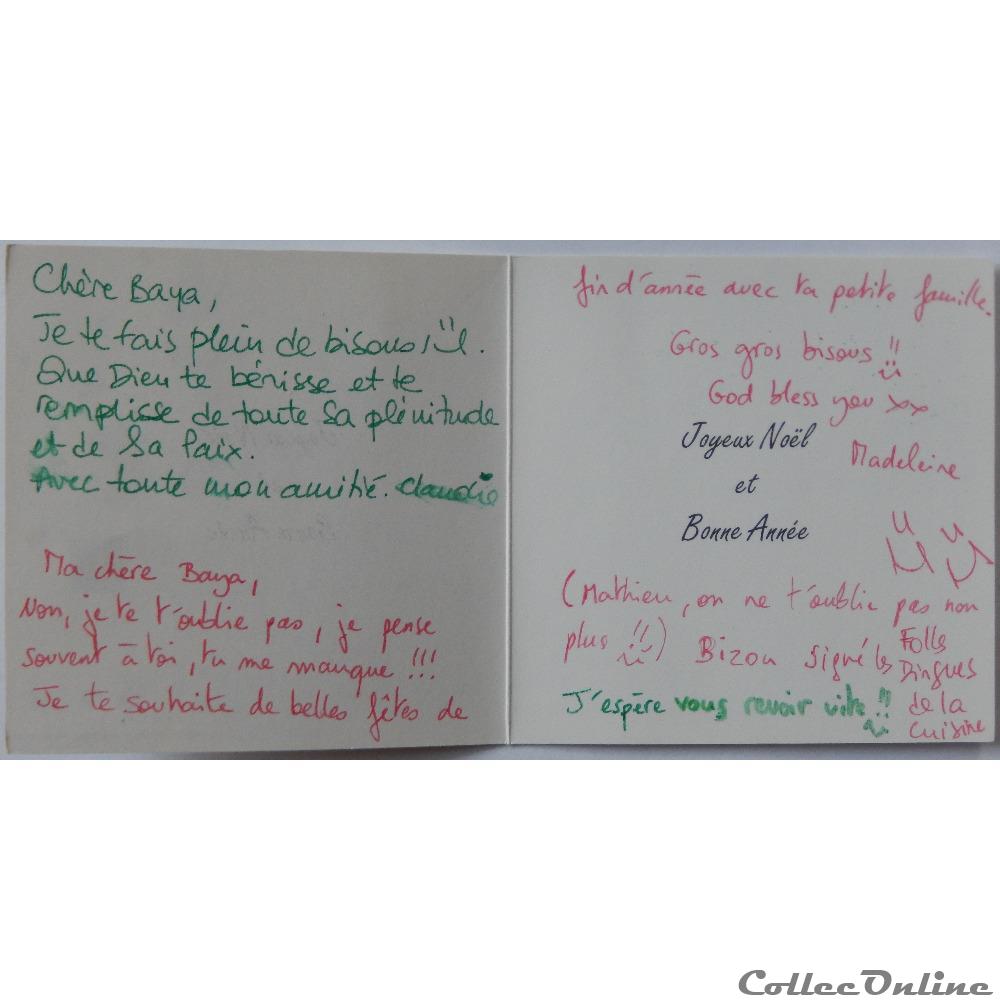 Chère Baya,
Je te fais plein de bisous !
Que Dieu te bénisse et te
remplisse de toute sa plénitude
et de Sa Paix.
Avec toute mon amitié. Claudie
Ma chère Baya,
Non, je te t'oublie pas, je pense
souvent à toi, tu me manque !!!
Je te souhaite de belles fêtes de
fin d'année avec ta petite famille.
Gros gros bisous !!
God bless you xx
Joyeux Noël
Madeleine
et
Bonne Année
(Mathieu, on ne t'oublie pas non
plus !!) Bizou signé les Folles
Dingues
de la
cuisine
J'espère vous revoir vite !!
CollecOnline